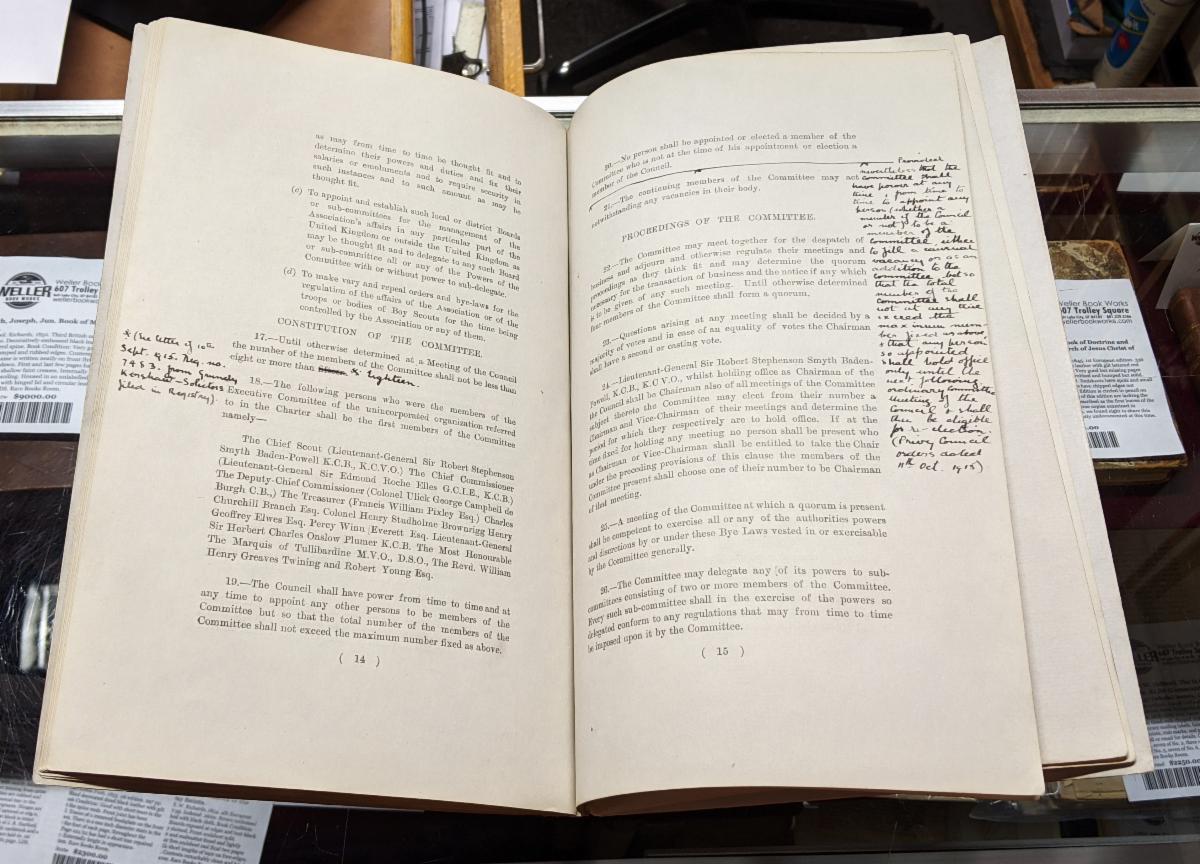 as may from time to time be thought fit and to
determine their powers and duties and fix their
salaries or emoluments and to require security in
such instances and to such amount as may be
thought fit.
(c) To appoint and establish such local or district Boards
or sub-committees for the management of the
Association's affairs in any particular part of the
United Kingdom or outside the United Kingdom as
may be thought fit and to delegate to any such Board
or sub-committee all or any of the Powers of the
Committee with or without power to sub-delegate.
(d) To make vary and repeal orders and bye-laws for the
regulation of the affairs of the Association or of the
troops or bodies of Boy Scouts for the time being
controlled by the Association or any of them.
CONSTITUTION OF THE COMMITTEE.
17.—Until otherwise determined at a Meeting of the Council
the number of the members of the Committee shall not be less than
eight or more than fifteen * Eighteen.
* (See letter of 10th
Sept. 1915. Reg. no.
7953. from
Kershaw - Solicitors
filed in Registry).
18.—The following persons who were the members of the
Executive Committee of the unincorporated organization referred
to in the Charter shall be the first members of the Committee
namely—
The Chief Scout (Lieutenant-General Sir Robert Stephenson
Smyth Baden-Powell K.C.B., K.C.V.O.) The Chief Commissioner
(Lieutenant-General Sir Edmond Roche Elles G.C.I.E., K.C.B.)
The Deputy-Chief Commissioner (Colonel Ulick George Campbell de
Burgh C.B.,) The Treasurer (Francis William Pixley Esq.) Charles
Churchill Branch Esq. Colonel Henry Studholme Brownrigg Henry
Geoffrey Elwes Esq. Percy Winn Everett Esq. Lieutenant-General
Sir Herbert Charles Onslow Plumer K.C.B. The Most Honourable
The Marquis of Tullibardine M.V.O., D.S.O., The Revd. William
Henry Greaves Twining and Robert Young Esq.
19.—The Council shall have power from time to time and at
any time to appoint any other persons to be members of the
Committee but so that the total number of the members of the
Committee shall not exceed the maximum number fixed as above.
( 14 )
20.—No person shall be appointed or elected a member of the
Committee who is not at the time of his appointment or election a
member of the Council.
21.—The continuing members of the Committee may act
notwithstanding any vacancies in their body.
PROCEEDINGS OF THE COMMITTEE.
22.—The Committee may meet together for the despatch of
business and adjourn and otherwise regulate their meetings and
proceedings as they think fit and may determine the quorum
necessary for the transaction of business and the notice if any which
is to be given of any such meeting. Until otherwise determined
four members of the Committee shall form a quorum.
23.—Questions arising at any meeting shall be decided by a
majority of votes and in case of an equality of votes the Chairman
shall have a second or casting vote.
24.—Lieutenant-General Sir Robert Stephenson Smyth Baden-
Powell, K.C.B., K.C.V.O., whilst holding office as Chairman of the
the Council shall be Chairman also of all meetings of the Committee
subject thereto the Committee may elect from their number a
Chairman and Vice-Chairman of their meetings and determine the
period for which they respectively are to hold office. If at the
time fixed for holding any meeting no person shall be present who
as Chairman or Vice-Chairman shall be entitled to take the Chair
under the preceding provisions of this clause the members of the
Committee present shall choose one of their number to be Chairman
of that meeting.
25.—A meeting of the Committee at which a quorum is present
shall be competent to exercise all or any of the authorities powers
and discretions by or under these Bye Laws vested in or exercisable
by the Committee generally.
26.—The Committee may delegate any of its powers to sub-
committees consisting of two or more members of the Committee.
Every such sub-committee shall in the exercise of the powers so
delegated conform to any regulations that may from time to time
be imposed upon it by the Committee.
( 15 )
Provided
nevertheless that the
committee shall
have power at any
time & from time to
time to appoint any
person (whether a
member of the Council
or not) to be a
member of the
committee either
to fill a casual
vacancy or as an
addition to the
committee, but so
that the total
number of the
committee shall
not at any time
exceed the
maximum num-
ber fixed as above
& that any person
so appointed
shall hold office
only until the
next following
ordinary
meeting of the
Council & shall
then be eligible
for re-election.
(Privy Council
orders dated
11th Oct. 1915)
WELLER
BOOK WORKS
Weller Book
607 Trolley
wellerbookworks
$9000.00
Weller Book Works
607 Trolley Square
wellerbookworks.com
ook of Doctrine and
$2250.00
$2500.00